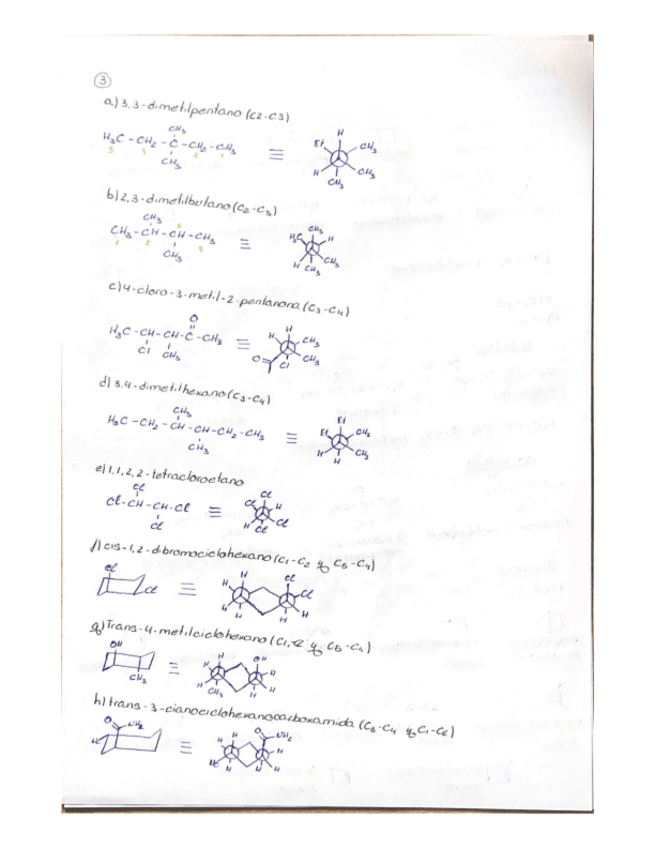 3
a) 3,3-dimetilpentano (C2-C3)
CH₃
H₃C - CH₂ - C - CH₂ - CH₃ ≡
CH₃
H
Et CH₃
H CH₃
CH₃
b) 2,3-dimetilbutano (C₂-C₃)
CH₃
CH₃ - CH - CH - CH₃ ≡
CH₃
H₃C CH₃ H
H CH₃ CH₃
c) 4-cloro-3-metil-2-pentanona (C₃-C₄)
O
H₃C - CH - CH - C - CH₃ ≡
Cl CH₃
H
H CH₃
O CH₃
Cl
d) 3,4-dimetilhexano (C₃-C₄)
CH₃
H₃C - CH₂ - CH - CH - CH₂ - CH₃ ≡
CH₃
Et
Et CH₃
H CH₃
H
e) 1,1,2,2-tetracloroetano
Cl
Cl - CH - CH - Cl ≡
Cl
Cl
Cl H
H Cl
Cl
f) cis-1,2-dibromociclohexano (C₁-C₂ y C₅-C₄)
Cl
Cl ≡
H Cl
H Cl
H H H H
g) Trans-4-metilciclohexano (C₁, y C₅-C₄)
OH
CH₃ ≡
H OH
H H
H CH₃ H H
h) trans-3-cianociclohexanocarboxamida (C₃-C₄ y C₁-C₆)
O NH₂
≡
O NH₂
H H
H H
H H